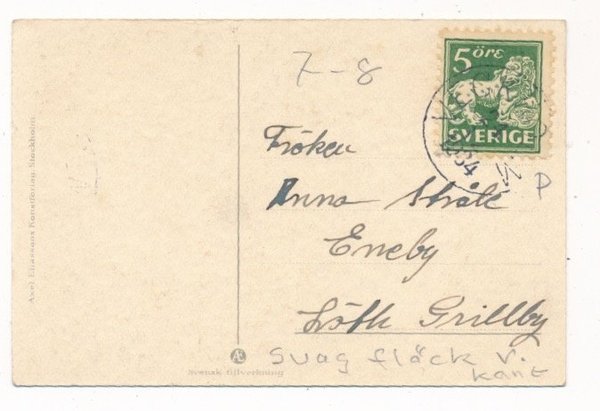 7-8
5 ÖRE
SVERIGE
1934
P
Fröken
Anna Stråle
Eneby
Löth Grillby
svag fläck v.
kant
Axel Eliassons Konstförlag, Stockholm
Æ
Svensk tillverkning